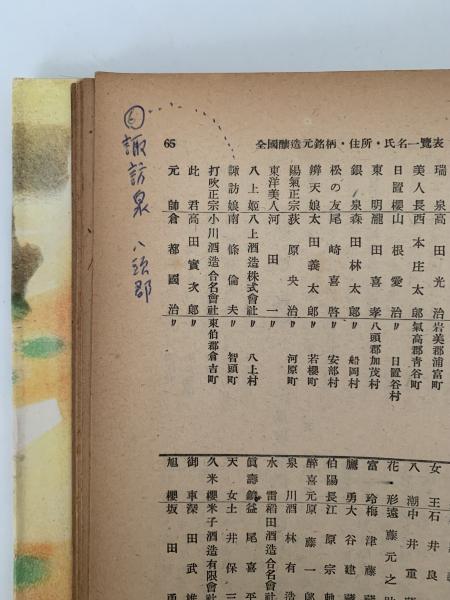 全國醸造元銘柄・住所・氏名一覽表
65
瑞泉 高田光治 岩美郡浦富町
美人長 西本庄太郎 氣高郡青谷町
日置櫻 山根愛治 〃 日置谷村
東明 瀧田喜孝 八頭郡加茂村
銀泉 森田林太郎 〃 船岡村
松の友 尾崎喜啓 〃 安部村
辨天娘 太田義太郎 〃 若櫻町
陽氣正宗 荻原央治 〃 河原町
東洋美人 河田一 〃
八上姫 八上酒造株式會社 〃 八上村
諏訪娘 南條倫夫 〃 智頭町
打吹正宗 小川酒造合名會社 東伯郡倉吉町
此君 高田實次郎 〃
元帥 倉都國治 〃
女王 石井良
八潮 中井重
花形 遠藤元之助
富玲 梅津藤
鷹勇 大谷建藏
伯陽長 江原宗
醉喜元 原藤一郎
泉川 酒林有造
水雷 稻田酒造合名會
眞壽鏡 益尾喜平
天女 土井保三
久米櫻 米子酒造有限會
御車 深田武雄
旭櫻 坂田勇
諏訪泉 八頭郡